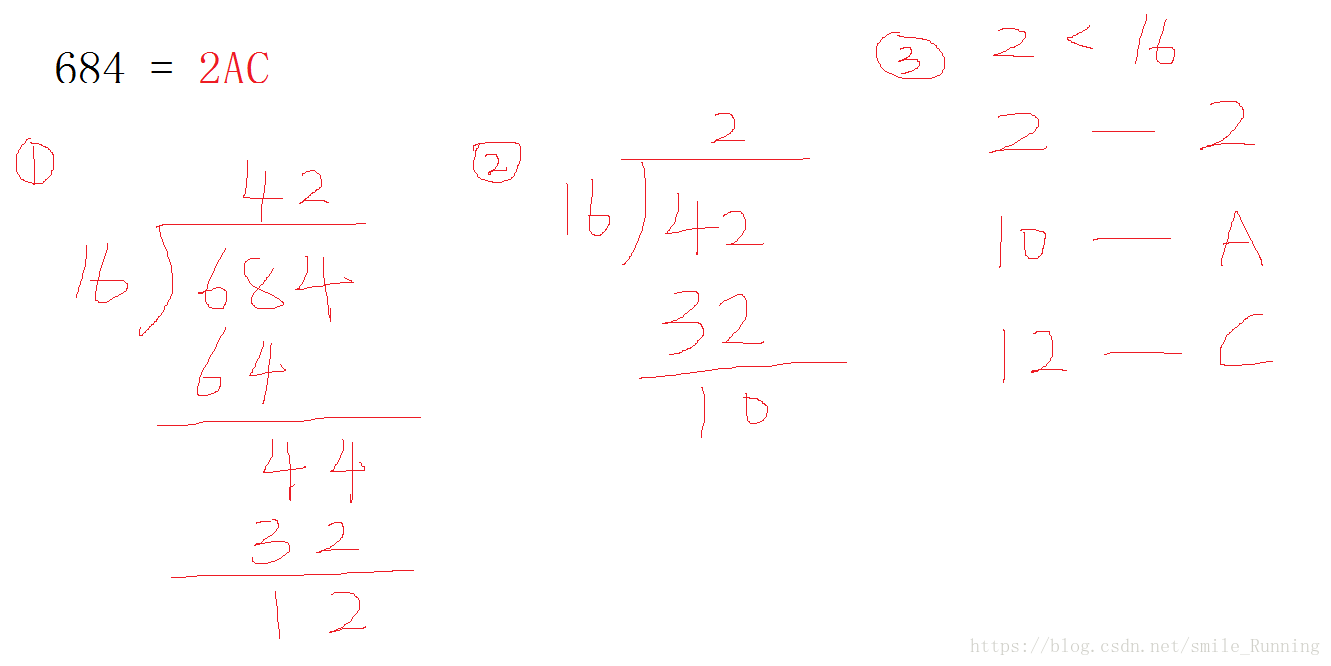 684 = 2AC
①
42
16 684
64
44
32
12
②
2
16 42
32
10
③ 2 < 16
2 — 2
10 — A
12 — C
https://blog.csdn.net/smile_Running